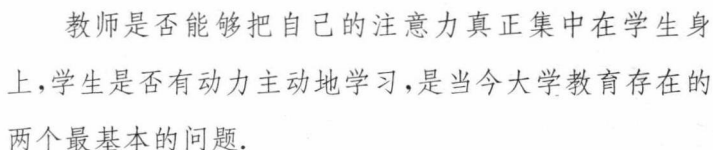 教师是否能够把自己的注意力真正集中在学生身
上,学生是否有动力主动地学习,是当今大学教育存在的
两个最基本的问题.